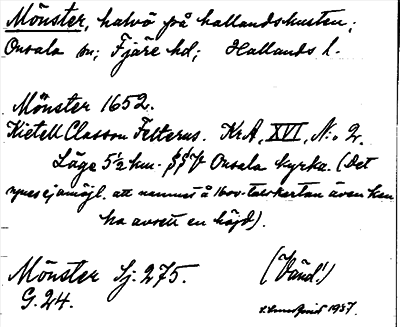 Mönster, halvö på hallandskusten;
Onsala sn; Fjäre hd; Hallands l.
Mönster 1652.
Kietell Classon Felterus. KrA, XVI, N:o 2.
Läge 5½ km. Onsala kyrka. (Det
synes ej omöjl. att namnet å 1600-talskartan även kan
ha avsett en höjd).
Mönster Sj. 275. (Vänd!)
G. 24. 1937.